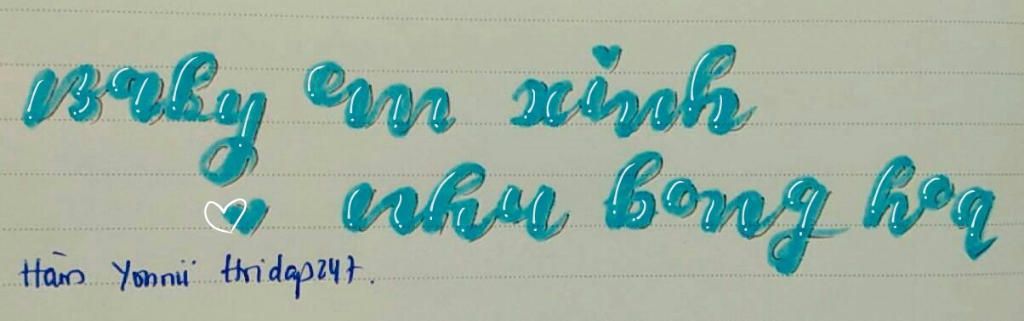 Baby em xinh
như bong hoa
Hàn Yonnii thidap247.